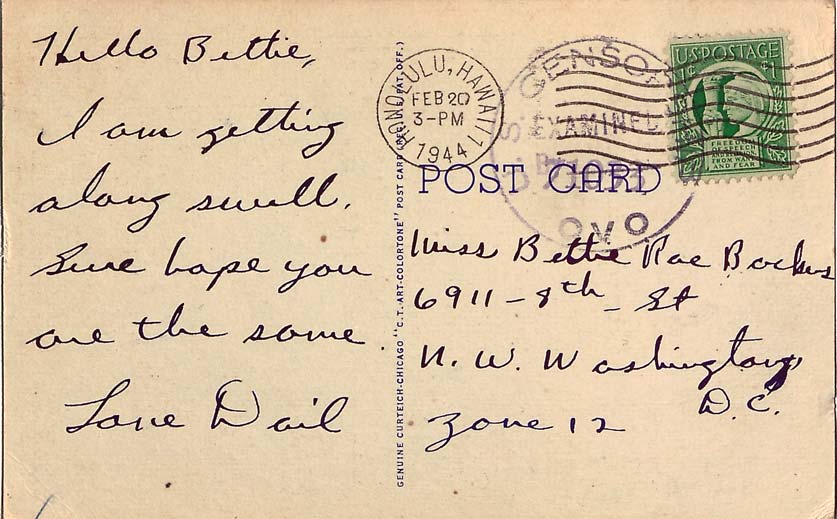 Hello Bettie,
I am getting
along swell.
Sure hope you
are the same
Love Dail
GENUINE CURTEICH-CHICAGO "C.T. ART-COLORTONE" POST CARD (REG. U.S. PAT. OFF.)
HONOLULU, HAWAII
FEB 20
3-PM
1944
U.S. CENSOR
EXAMINED
BY
OVO
U.S. POSTAGE
1¢ 1¢
FREEDOM
OF SPEECH
AND RELIGION,
FROM WANT
AND FEAR
POST CARD
Miss Bettie Rae
6911-8th St
N. W. Washington
D.C.
Zone 12